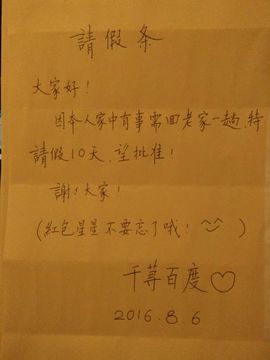 請假条
大家好！
因本人家中有事需回老家一趟,特
請假10天,望批准！
謝謝大家！
(紅包星星不要忘了哦！^^)
千荨百度♡
2016.8.6